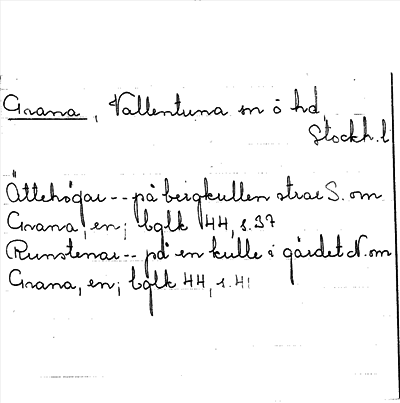 Grana, Vallentuna sn o hd
Stockh.l
Ättehögar -- på bergkullen strax S. om
Grana, en; bglk 44, s.37
Runstenar -- på en kulle i gärdet N. om
Grana, en; bglk 44, s.41